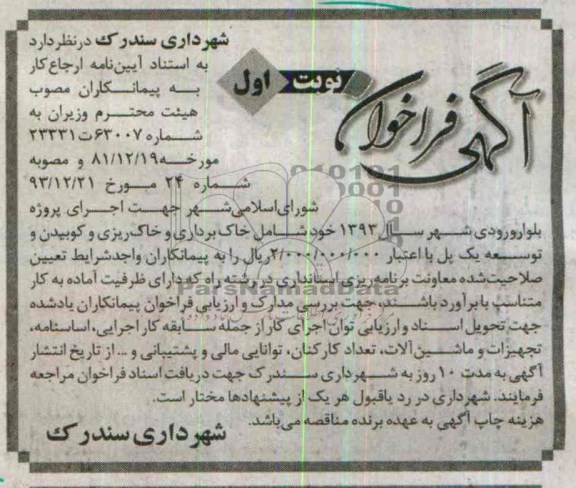 آگهی فراخوان
نوبت اول
شهرداری سندرک درنظردارد
به استناد آیین‌نامه ارجاع کار
به پیمانکاران مصوب
هیئت محترم وزیران به
شماره ۶۳۰۰۷ت۲۳۳۳۱
مورخه ۸۱/۱۲/۱۹ و مصوبه
شماره ۲۴ مورخ ۹۳/۱۲/۲۱
شورای‌اسلامی‌شهر جهت اجرای پروژه
بلوارورودی شهر سال ۱۳۹۳ خود شامل خاک برداری و خاک‌ریزی و کوبیدن و
توسعه یک پل با اعتبار ۲/۰۰۰/۰۰۰/۰۰۰ریال را به پیمانکاران واجدشرایط تعیین
صلاحیت‌شده معاونت برنامه‌ریزی استانداری در رشته راه که دارای ظرفیت آماده به کار
متناسب با برآورد باشند، جهت بررسی مدارک و ارزیابی فراخوان پیمانکاران یادشده
جهت تحویل اسناد و ارزیابی توان اجرای کار از جمله سابقه کار اجرایی، اساسنامه،
تجهیزات و ماشین‌آلات، تعداد کارکنان، توانایی مالی و پشتیبانی و ... از تاریخ انتشار
آگهی به مدت ۱۰ روز به شهرداری سندرک جهت دریافت اسناد فراخوان مراجعه
فرمایند. شهرداری در رد یاقبول هر یک از پیشنهادها مختار است.
هزینه چاپ آگهی به عهده برنده مناقصه می‌باشد.
شهرداری سندرک
ParsNamadData